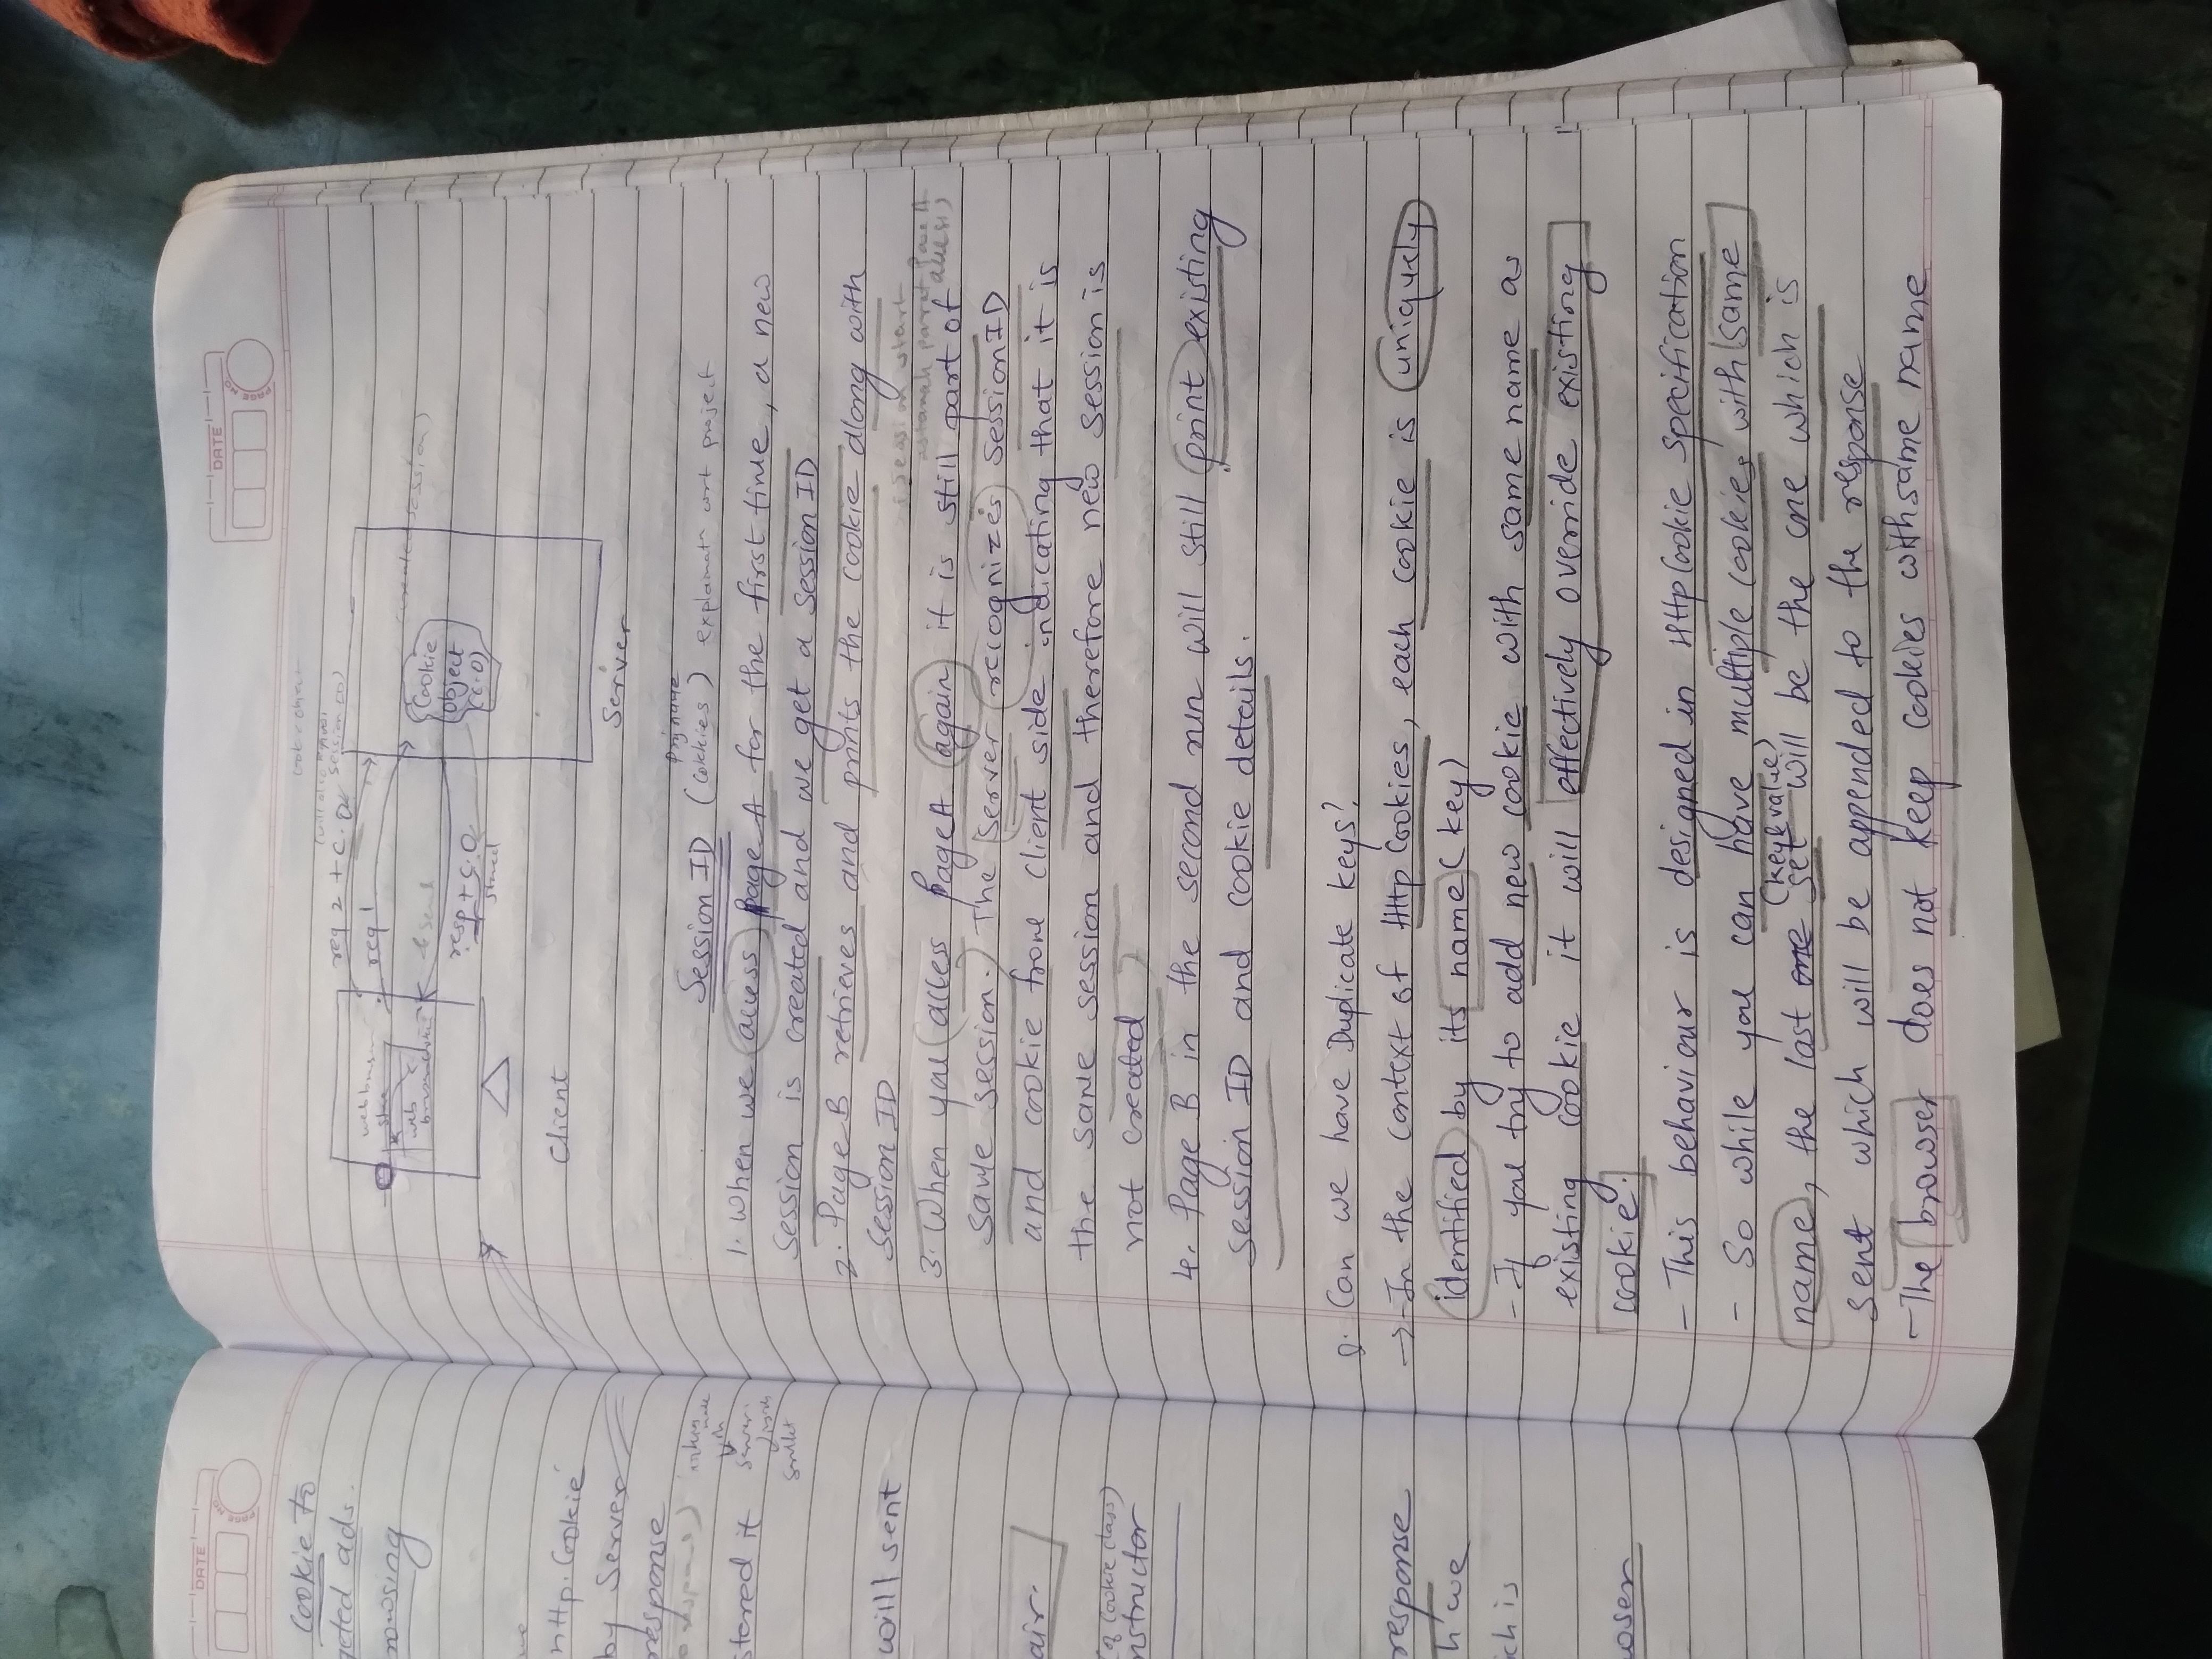 DATE
PAGE NO
Cookie to
geted ads.
rowsing
http.Cookie
by Server
response
stored it
Server.
will sent
air.
(of Cookie class)
nstructor
response
h we
ich is
owser
DATE
PAGE NO
req 2 + C.O
session ID)
req 1
web
Cookie
object
(C.O)
& send
resp + C.O
stored
Client
Server
Session ID (Cokkies) project
1. When we access page A for the first time, a new
session is created and we get a session ID
2. Page B retrieves and prints the cookie along with
session ID
(Session start
3. When you access Page A again it is still part of
same session.) The server recognizes session ID
and cookie from client side indicating that it is
the same session and therefore new session is
not created
4. Page B in the second run will still print existing
session ID and cookie details.
Q. Can we have Duplicate keys?
→ - In the context of Http Cookies, each cookie is uniquely
identified by its name (key)
- If you try to add new cookie with same name as
existing cookie it will effectively override existing
cookie.
- This behaviour is designed in Http Cookie Specification
- So while you can have multiple cookies with same
(key & value)
name, the last set will be the one which is
sent which will be appended to the response
- The browser does not keep cookies with same name